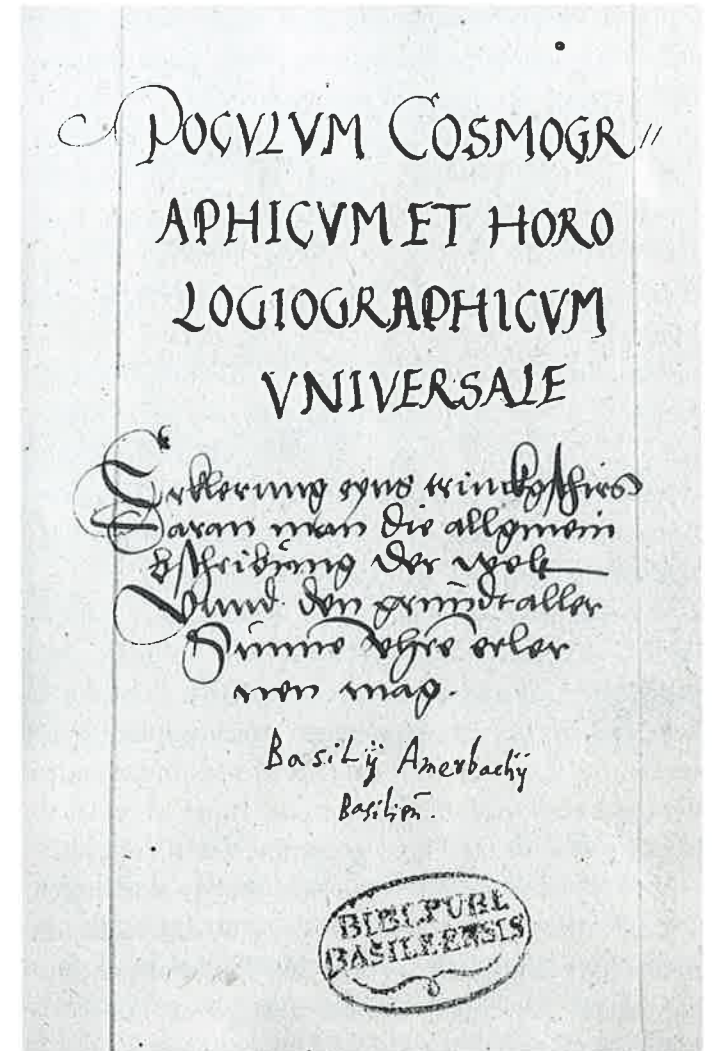 POCVLVM COSMOGR//
APHICVM ET HORO
LOGIOGRAPHICVM
VNIVERSALE
Erklerung eyns trinckgschirs
Daran man die allgmein
bschribung der welt
Vnnd den grundt aller
Sunnē vhrē erler
nen mag.
Basilij Amerbachij
Basilien̄.
BIBL.PUBL
BASILEENSIS